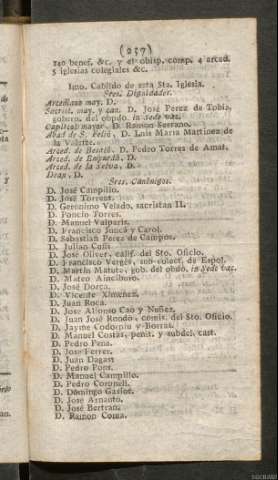 (237)
240 benef. &c. y el obisp. comp. 4 arced.
5 iglesias colegiales &c.
Imo. Cabildo de esta Sta. Iglesia.
Sres. Dignidades.
Arcediano may. D.
Sacrist. may. y can. D. José Perez de Tobia,
gobern. del obpdo. in Sede vac.
Capiscol mayor. D. Ramon Serrano.
Abad de S. Feliú, D. Luis Maria Martinez de
la Valette.
Arced. de Besalú. D. Pedro Torres de Amat.
Arced. de Ampurdá. D.
Arced. de la Selva. D.
Dean. D.
Sres. Canónigos.
D. José Campillo.
D. José Torrent.
D. Geronimo Velado, sacristan II.
D. Poncio Torres.
D. Manuel Valparis.
D. Francisco Juncá y Carol.
D. Sebastian Perez de Campos.
D. Julian Cufi.
D. José Oliver, calif. del Sto. Oficio.
D. Francisco Verges, sub-colect. de Espol.
D. Martin Matute, gob. del obdo. in Sede vac.
D. Mateo Aincibuso.
D. José Dorca.
D. Vicente Ximenez.
D. Juan Roca.
D. Jose Alfonso Cao y Nuñez.
D. Juan José Rendon, comis. del Sto. Oficio.
D. Jayme Codorniu y Borras.
D. Manuel Costas, penit. y subdel. cast.
D. Pedro Pena.
D. Jose Ferrer.
D. Juan Dagast
D. Pedro Pont.
D. Manuel Campillo.
D. Pedro Coronell.
D. Domingo Gasfot.
D. Jose Amanto.
D. José Bertran.
D. Ramon Coma.